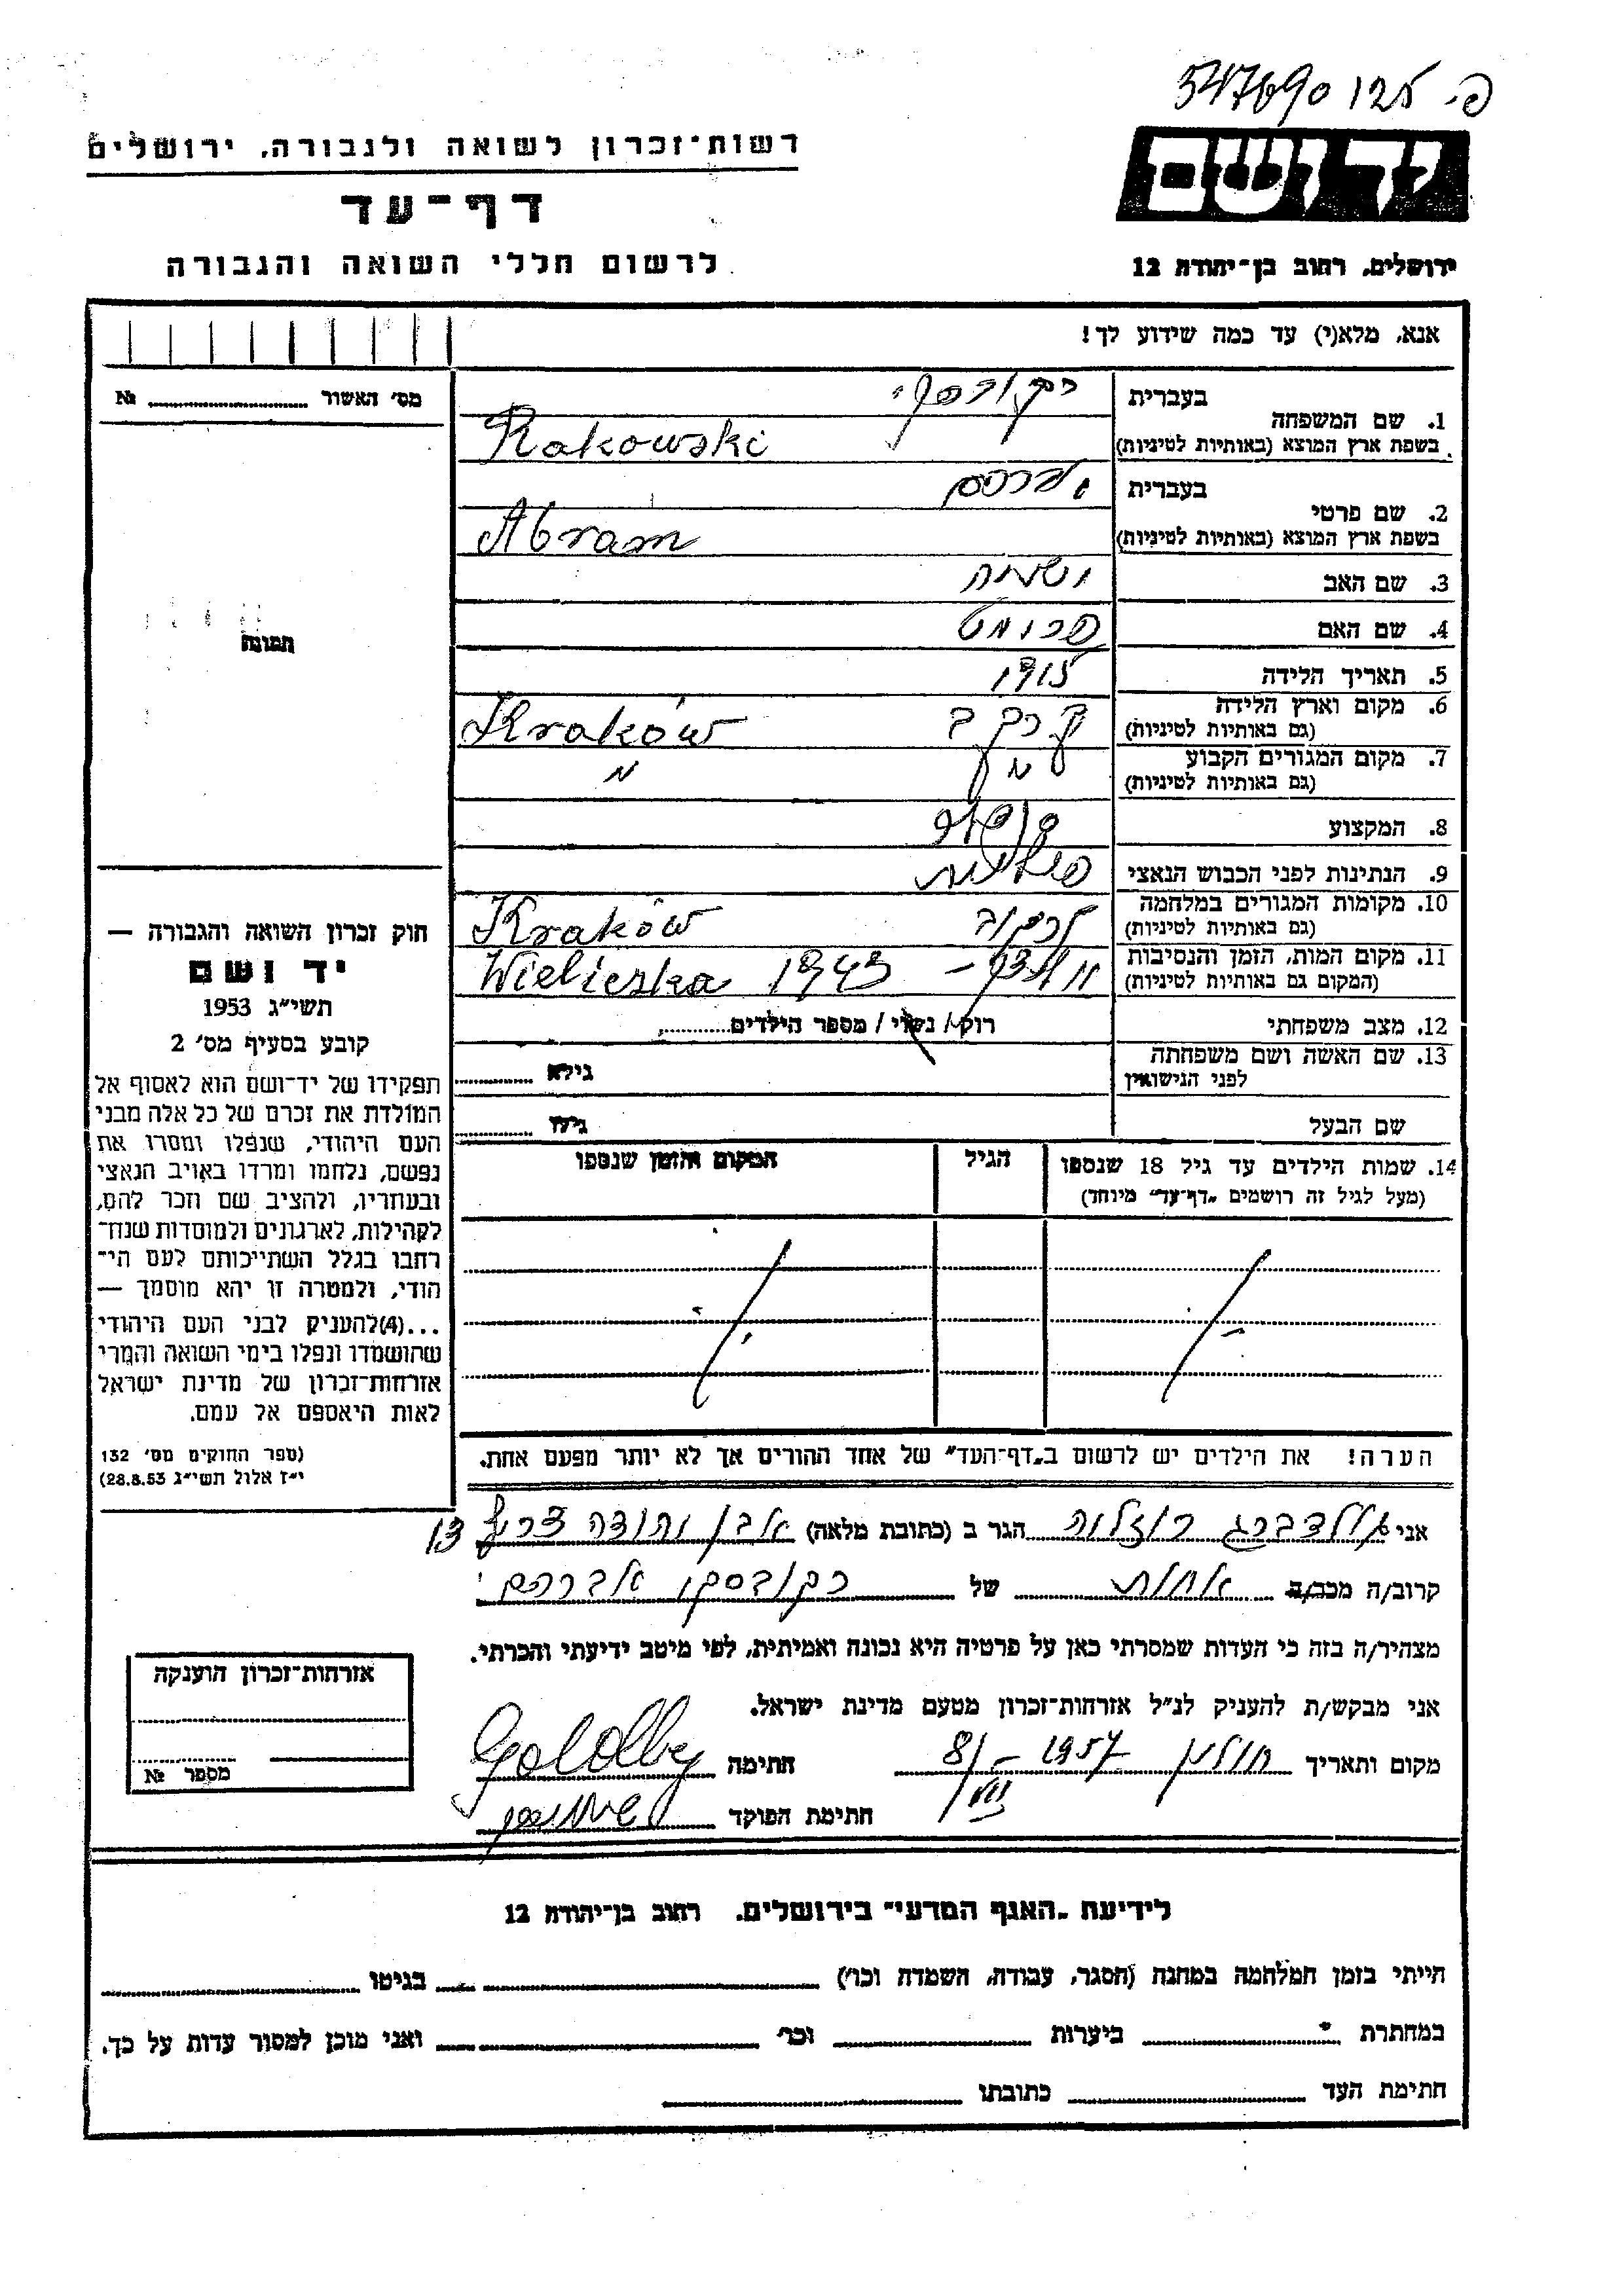 547690
יד ושם
רשות־זכרון לשואה ולגבורה, ירושלים
דף־עד
לרשום חללי השואה והגבורה
ירושלים, רחוב בן־יהודה 12
אנא, מלא(י) עד כמה שידוע לך!
מס׳ האשור № 
1. שם המשפחה
בעברית רקובסקי
בשפת ארץ המוצא (באותיות לטיניות) Rakowski
2. שם פרטי
בעברית אברהם
בשפת ארץ המוצא (באותיות לטיניות) Abram
3. שם האב ישעיה
4. שם האם
5. תאריך הלידה 1915
6. מקום וארץ הלידה
(גם באותיות לטיניות) Kraków
7. מקום המגורים הקבוע
(גם באותיות לטיניות) "
8. המקצוע
9. הנתינות לפני הכבוש הנאצי פולנית
10. מקומות המגורים במלחמה
(גם באותיות לטיניות) Kraków
11. מקום המות, הזמן והנסיבות
(המקום גם באותיות לטיניות) Wieliczka 1943
12. מצב משפחתי רוק / נשוי / מספר הילדים
13. שם האשה ושם משפחתה
לפני הנישואין גילא
שם הבעל גילו
14. שמות הילדים עד גיל 18 שנספו
(מעל לגיל זה רושמים "דף־עד" מיוחד)
הגיל
המקום והזמן שנספו
תמונה
חוק זכרון השואה והגבורה —
יד ושם
תשי״ג 1953
קובע בסעיף מס׳ 2
תפקידו של יד־ושם הוא לאסוף אל
המולדת את זכרם של כל אלה מבני
העם היהודי, שנפלו ומסרו את
נפשם, נלחמו ומרדו באויב הנאצי
ובעוזריו, ולהציב שם וזכר להם,
לקהילות, לארגונים ולמוסדות שנח־
רבו בגלל השתייכותם לעם הי־
הודי, ולמטרה זו יהא מוסמך —
...(4)להעניק לבני העם היהודי
שהושמדו ונפלו בימי השואה והמרי
אזרחות־זכרון של מדינת ישראל
לאות היאספם אל עמם.
(ספר החוקים מס׳ 132
י״ז אלול תשי״ג 28.8.53)
הערה! את הילדים יש לרשום ב"דף־העד" של אחד ההורים אך לא יותר מפעם אחת.
אני גולדברג רוזליה הגר ב (כתובת מלאה) אבן יהודה צריף 13
קרוב/ה מכר/ה אחות של רקובסקי אברהם
מצהיר/ה בזה כי העדות שמסרתי כאן על פרטיה היא נכונה ואמיתית, לפי מיטב ידיעתי והכרתי.
אני מבקש/ת להעניק לנ״ל אזרחות־זכרון מטעם מדינת ישראל.
מקום ותאריך חולון 8/VII – 1957 חתימה
חתימת הפוקד
אזרחות־זכרון הוענקה
מספר №
לידיעת "האגף המדעי" בירושלים. רחוב בן־יהודה 12
הייתי בזמן המלחמה במחנה (הסגר, עבודה, השמדה וכו׳) בגיטו
במחתרת ביערות וכו׳ ואני מוכן למסור עדות על כך.
חתימת העד כתובתו